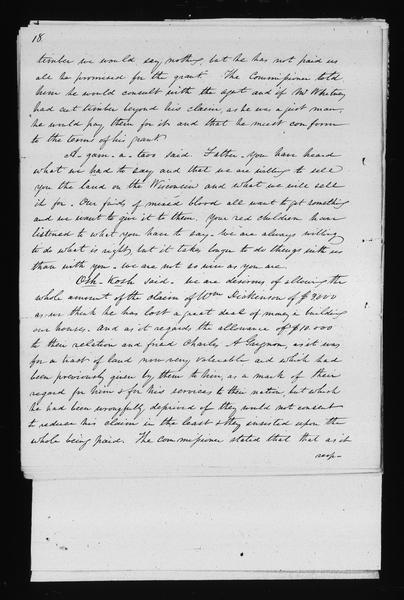 18.
timber we would say nothing but he has not paid us
all he promised for the grant. The Commissioner told
him he would consult with the agt and if Mr Whitney
had cut timber beyond his claim, as he was a just man,
he would pay them for it and that he must conform
to the terms of his grant
A-gam-a-tavo said. Father. you have heard
what we had to say and that we are willing to sell
you the land on the Wisconsin and what we will sell
it for. Our frinds of mixed blood all want to get something
and we want to give it to them. your red children have
listened to what you have to say. we are always willing
to do what is right but it takes longer to do things with us
than with you. we are not as wise as you are.
Osh-Kosh said. we are desirous of allowing the
whole amount of the claim of Wm Dickenson of $3000
as we think he has lost a great deal of money in building
our houses. and as it regards the allowance of $10.000
to their relation and frind Charles A Grignon, as it was
for a tract of land now very valuable and which had
been previously given by them to him, as a mark of their
regard for him & for his services to their nation but which
he had been wrongfully deprived of they would not consent
to reduce his claim in the least & they insisted upon the
whole being paid. The Commissioner stated that that as it
resp-